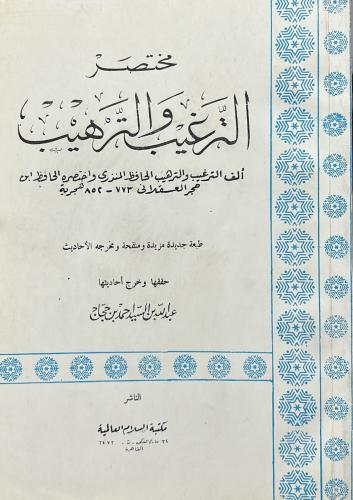 مختصر
الترغيب والترهيب
ألف الترغيب والترهيب الحافظ المنذرى واختصره الحافظ ابن
حجر العسقلانى ٧٧٣ - ٨٥٢ هجرية
طبعة جديدة مزيدة ومنقحة ومخرجه الأحاديث
حققها وخرج أحاديثها
عبدالله بن السيد احمد بن حجاج
الناشر
مكتبة السلام العالمية
القاهرة